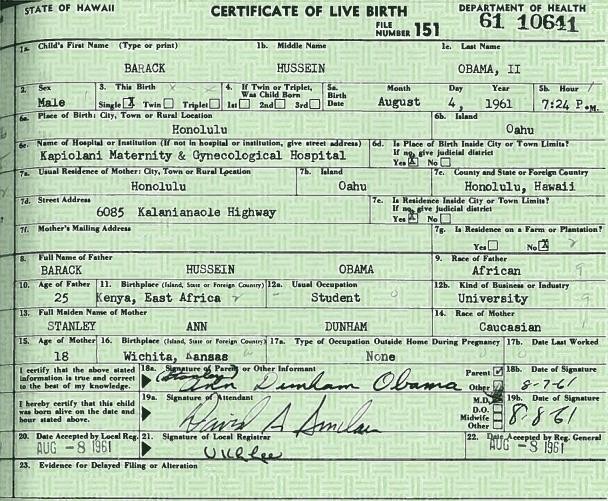 STATE OF HAWAII CERTIFICATE OF LIVE BIRTH DEPARTMENT OF HEALTH
FILE NUMBER 151 61 10641
1a. Child's First Name (Type or print) 1b. Middle Name 1c. Last Name
BARACK HUSSEIN OBAMA, II
2. Sex 3. This Birth 4. If Twin or Triplet, Was Child Born 5a. Birth Date Month Day Year 5b. Hour
Male Single X Twin Triplet 1st 2nd 3rd August 4, 1961 7:24 P.M.
6a. Place of Birth: City, Town or Rural Location 6b. Island
Honolulu Oahu
6c. Name of Hospital or Institution (If not in hospital or institution, give street address) 6d. Is Place of Birth Inside City or Town Limits? If no, give judicial district
Kapiolani Maternity & Gynecological Hospital Yes X No
7a. Usual Residence of Mother: City, Town or Rural Location 7b. Island 7c. County and State or Foreign Country
Honolulu Oahu Honolulu, Hawaii
7d. Street Address 7e. Is Residence Inside City or Town Limits? If no, give judicial district
6085 Kalanianaole Highway Yes X No
7f. Mother's Mailing Address 7g. Is Residence on a Farm or Plantation?
Yes No X
8. Full Name of Father 9. Race of Father
BARACK HUSSEIN OBAMA African
10. Age of Father 11. Birthplace (Island, State or Foreign Country) 12a. Usual Occupation 12b. Kind of Business or Industry
25 Kenya, East Africa Student University
13. Full Maiden Name of Mother 14. Race of Mother
STANLEY ANN DUNHAM Caucasian
15. Age of Mother 16. Birthplace (Island, State or Foreign Country) 17a. Type of Occupation Outside Home During Pregnancy 17b. Date Last Worked
18 Wichita, Kansas None
I certify that the above stated information is true and correct to the best of my knowledge. 18a. Signature of Parent or Other Informant Parent Other 18b. Date of Signature
(Stanley) Ann Dunham Obama 8-7-61
I hereby certify that this child was born alive on the date and hour stated above. 19a. Signature of Attendant M.D. D.O. Midwife Other 19b. Date of Signature
David A Sinclair 8-8-61
20. Date Accepted by Local Reg. 21. Signature of Local Registrar 22. Date Accepted by Reg. General
AUG -8 1961 AUG -8 1961
23. Evidence for Delayed Filing or Alteration